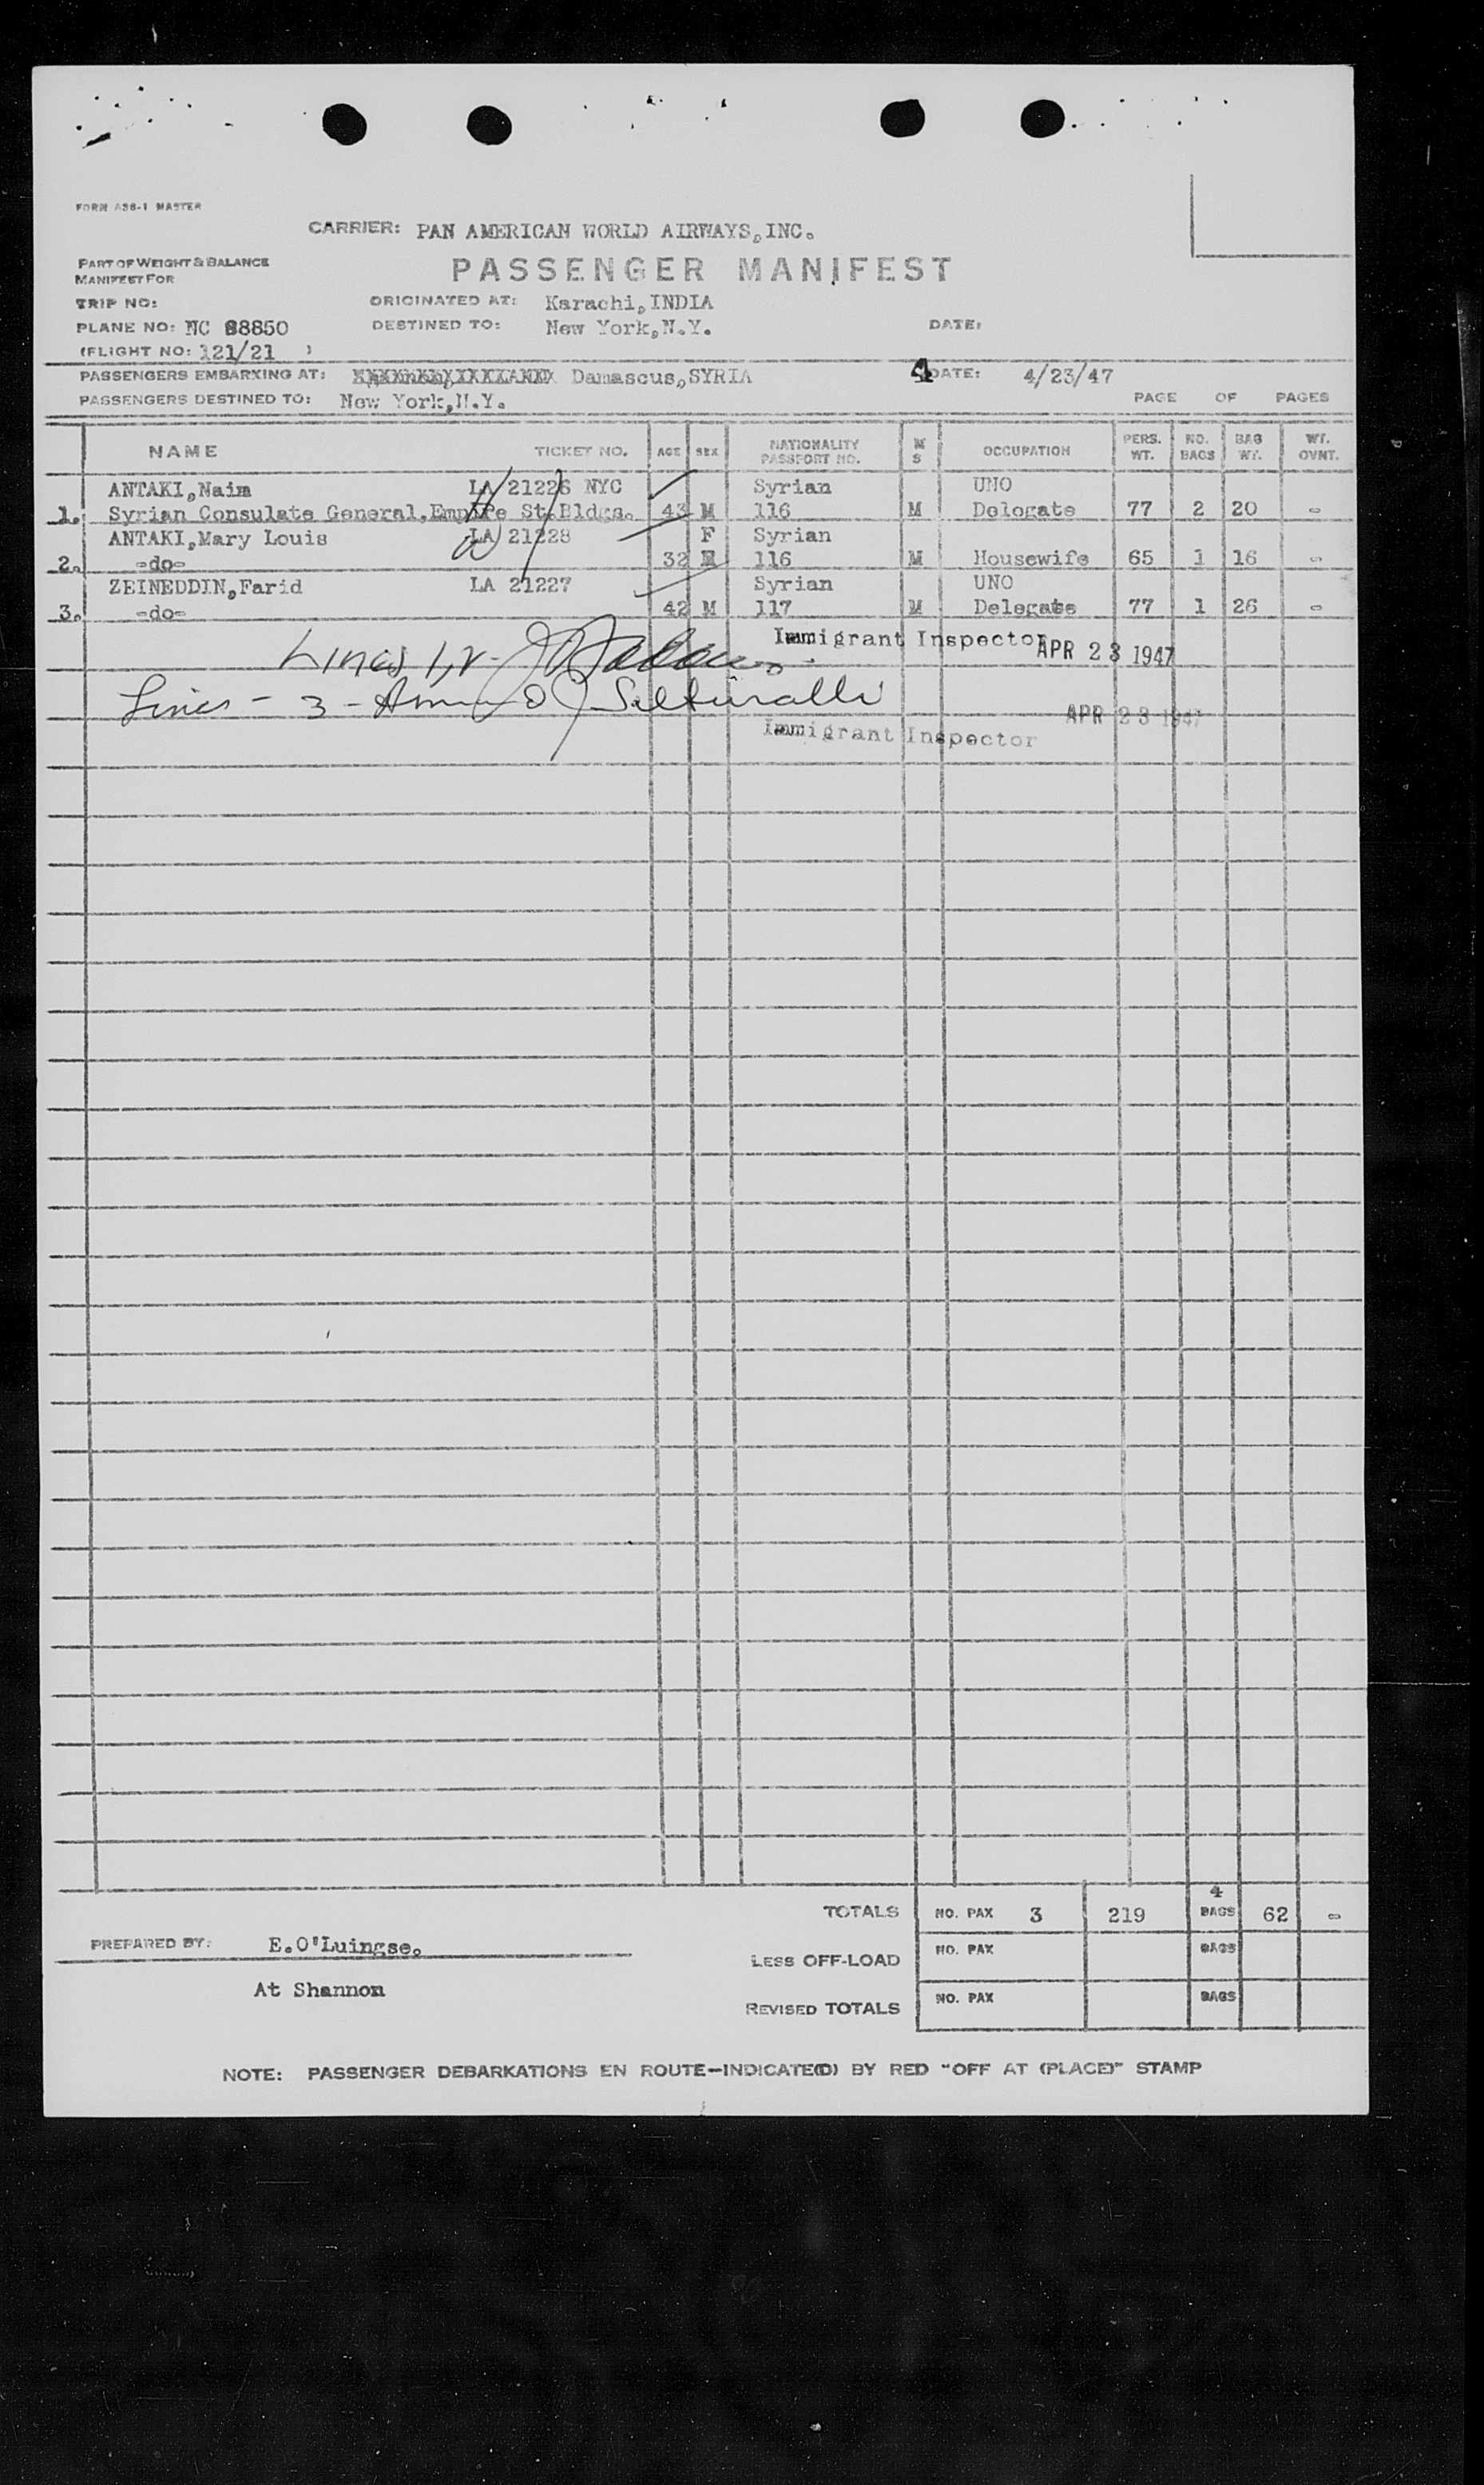 FORM A36-1 MASTER
CARRIER: PAN AMERICAN WORLD AIRWAYS,INC.
PART OF WEIGHT & BALANCE
MANIFEST FOR
PASSENGER MANIFEST
TRIP NO: ORIGINATED AT: Karachi,INDIA
PLANE NO: NC 88850 DESTINED TO: New York,N.Y. DATE:
(FLIGHT NO: 121/21 )
PASSENGERS EMBARKING AT: Damascus,SYRIA 4 DATE: 4/23/47
PASSENGERS DESTINED TO: New York,N.Y. PAGE OF PAGES
NAME TICKET NO. AGE SEX NATIONALITY PASSPORT NO. M S OCCUPATION PERS. WT. NO. BAGS BAG WT. WT. OVNT.
ANTAKI,Naim LA 21226 NYC Syrian UNO
1. Syrian Consulate General,Empire St.Bldgs. 43 M 116 M Delegate 77 2 20 -
ANTAKI,Mary Louis LA 21228 F Syrian
2. -do- 32 116 M Housewife 65 1 16 -
ZEINEDDIN,Farid LA 21227 Syrian UNO
3. -do- 42 M 117 M Delegate 77 1 26 -
Lines 1,2 - Immigrant Inspector APR 23 1947
Lines - 3 -
Immigrant Inspector APR 23 1947
TOTALS NO. PAX 3 219 4 BAGS 62 -
PREPARED BY: E.O'Luingse.
LESS OFF-LOAD NO. PAX BAGS
At Shannon
REVISED TOTALS NO. PAX BAGS
NOTE: PASSENGER DEBARKATIONS EN ROUTE—INDICATE(D) BY RED "OFF AT (PLACE)" STAMP